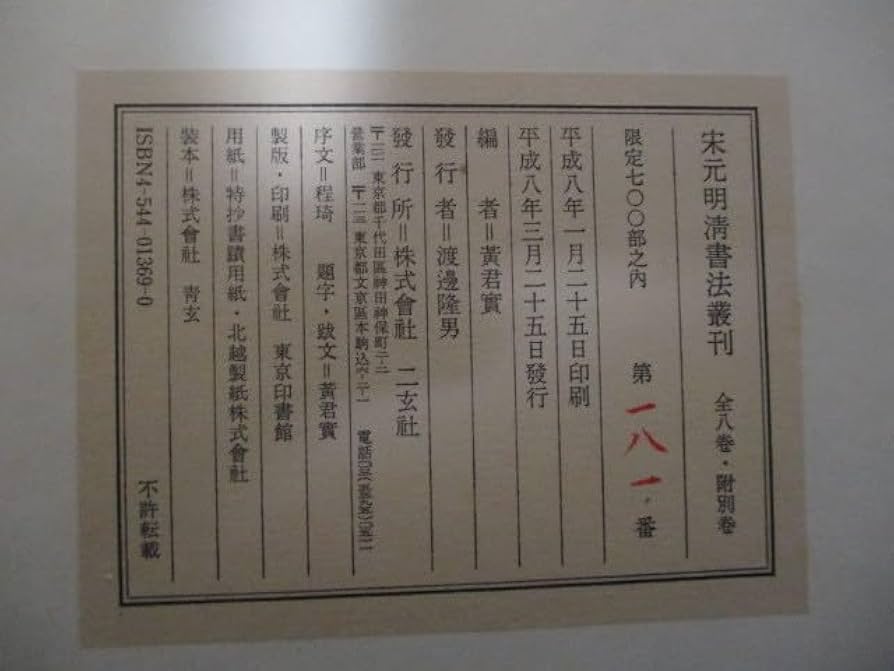 宋元明清書法叢刊　全八卷・附別卷
限定七〇〇部之內　第一八一番
平成八年一月二十五日印刷
平成八年三月二十五日發行
編者＝黃君實
發行者＝渡邊隆男
發行所＝株式會社　二玄社
東京都千代田區神田神保町二-二
營業部　東京都文京區本駒込六-二-一　電話
序文＝程琦　題字・跋文＝黃君實
製版・印刷＝株式會社　東京印書館
用紙＝特抄書蹟用紙・北越製紙株式會社
裝本＝株式會社　靑玄
ISBN4-544-01369-0　不許転載